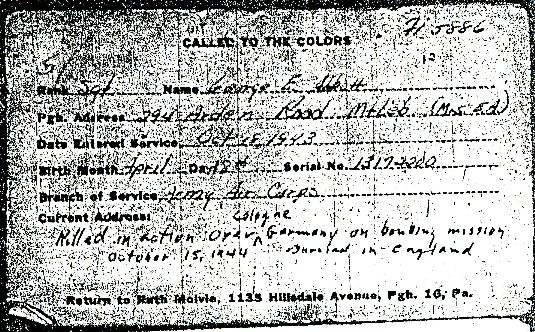 H 5886
CALLED TO THE COLORS
19
Rank Sgt Name George E. Abbott
Pgh. Address 294 Arden Road Mt Leb (Mrs Ed)
Date Entered Service Oct 18 1943
Birth Month April Day Serial No.
Branch of Service Army Air Corps
Current Address:
Cologne
Killed in action Over ^ Germany on bombing mission
October 15, 1944 - Buried in England
Return to Ruth Molvie, 1135 Hillsdale Avenue, Pgh. 16, Pa.